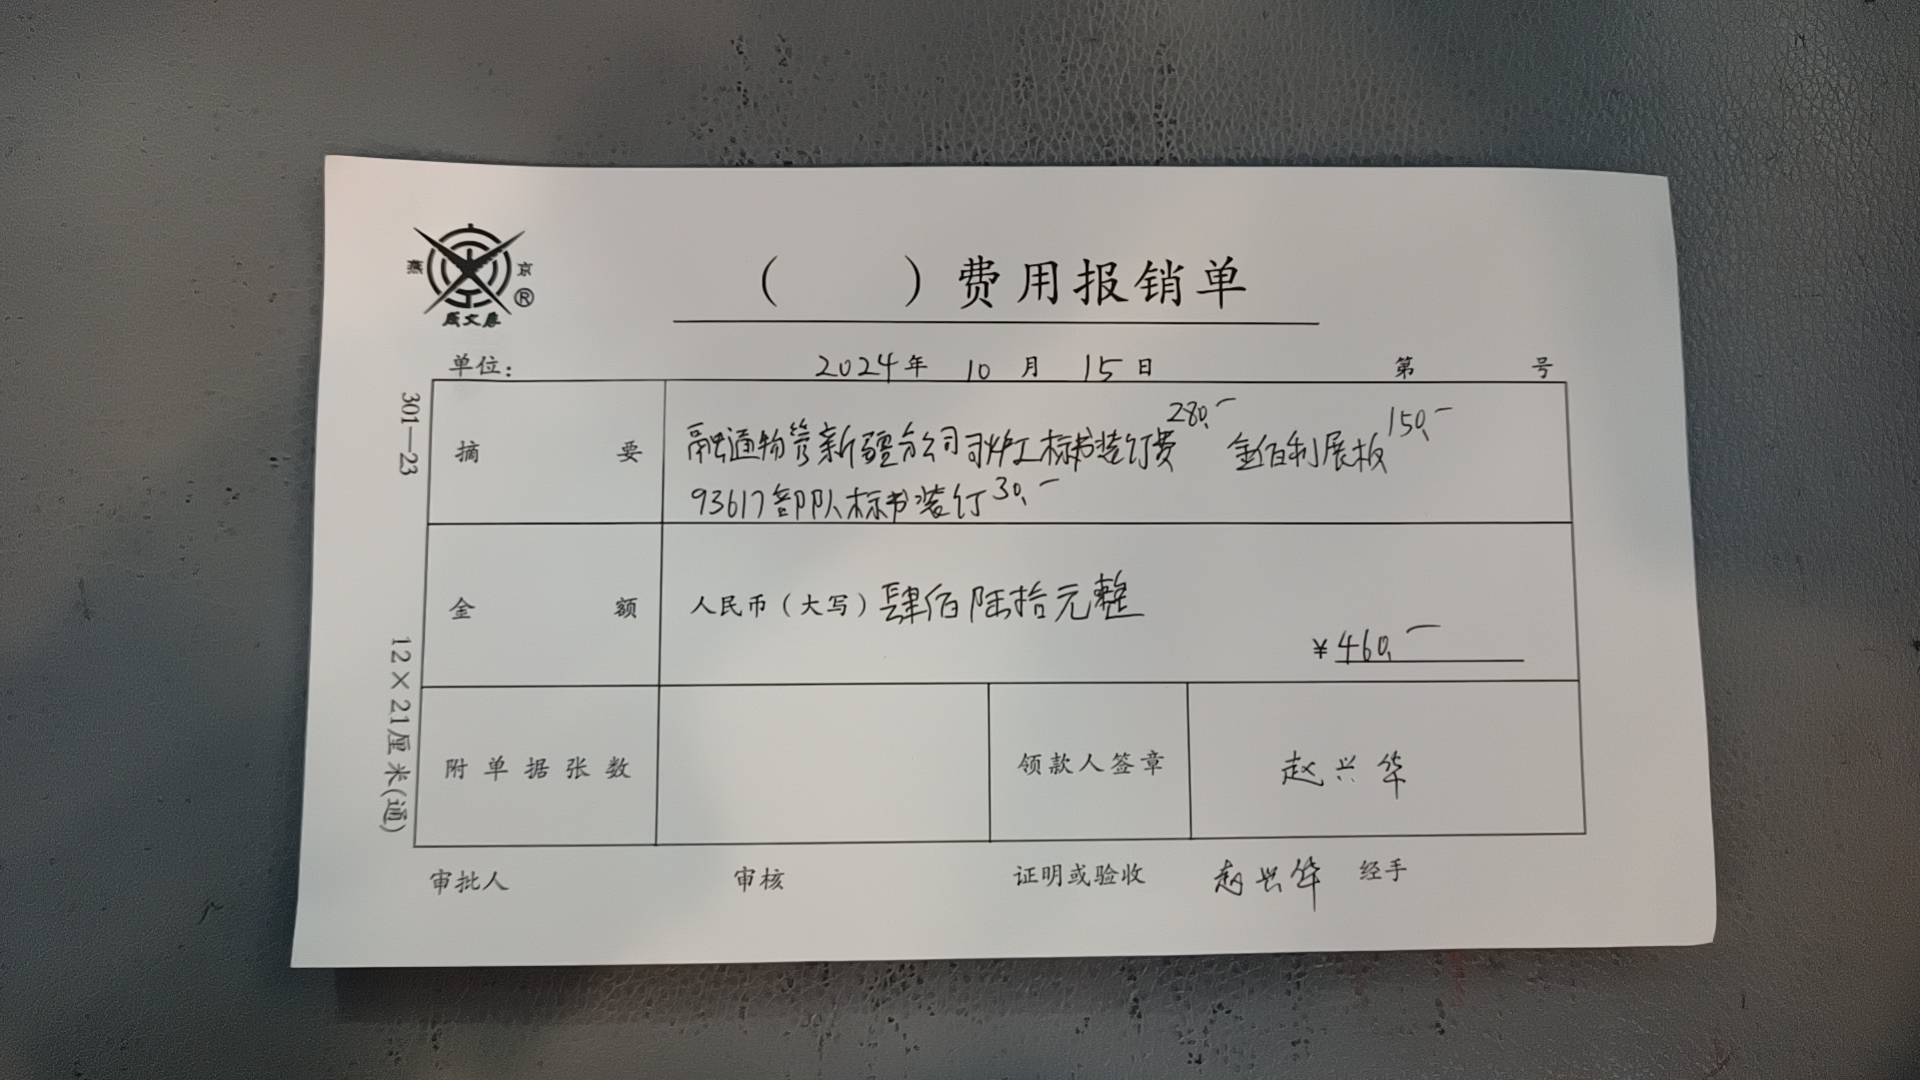 燕 京
®
成文厚
（ ）费用报销单
单位： 2024年 10月 15日 第 号
301—23
12×21厘米(通)
摘要 融通物管新疆分公司司炉工标书装订费280.- 金佰利展板150.-
93617部队标书装订30.-
金额 人民币（大写）肆佰陆拾元整
¥460.-
附单据张数 领款人签章 赵兴华
审批人 审核 证明或验收 赵兴华 经手